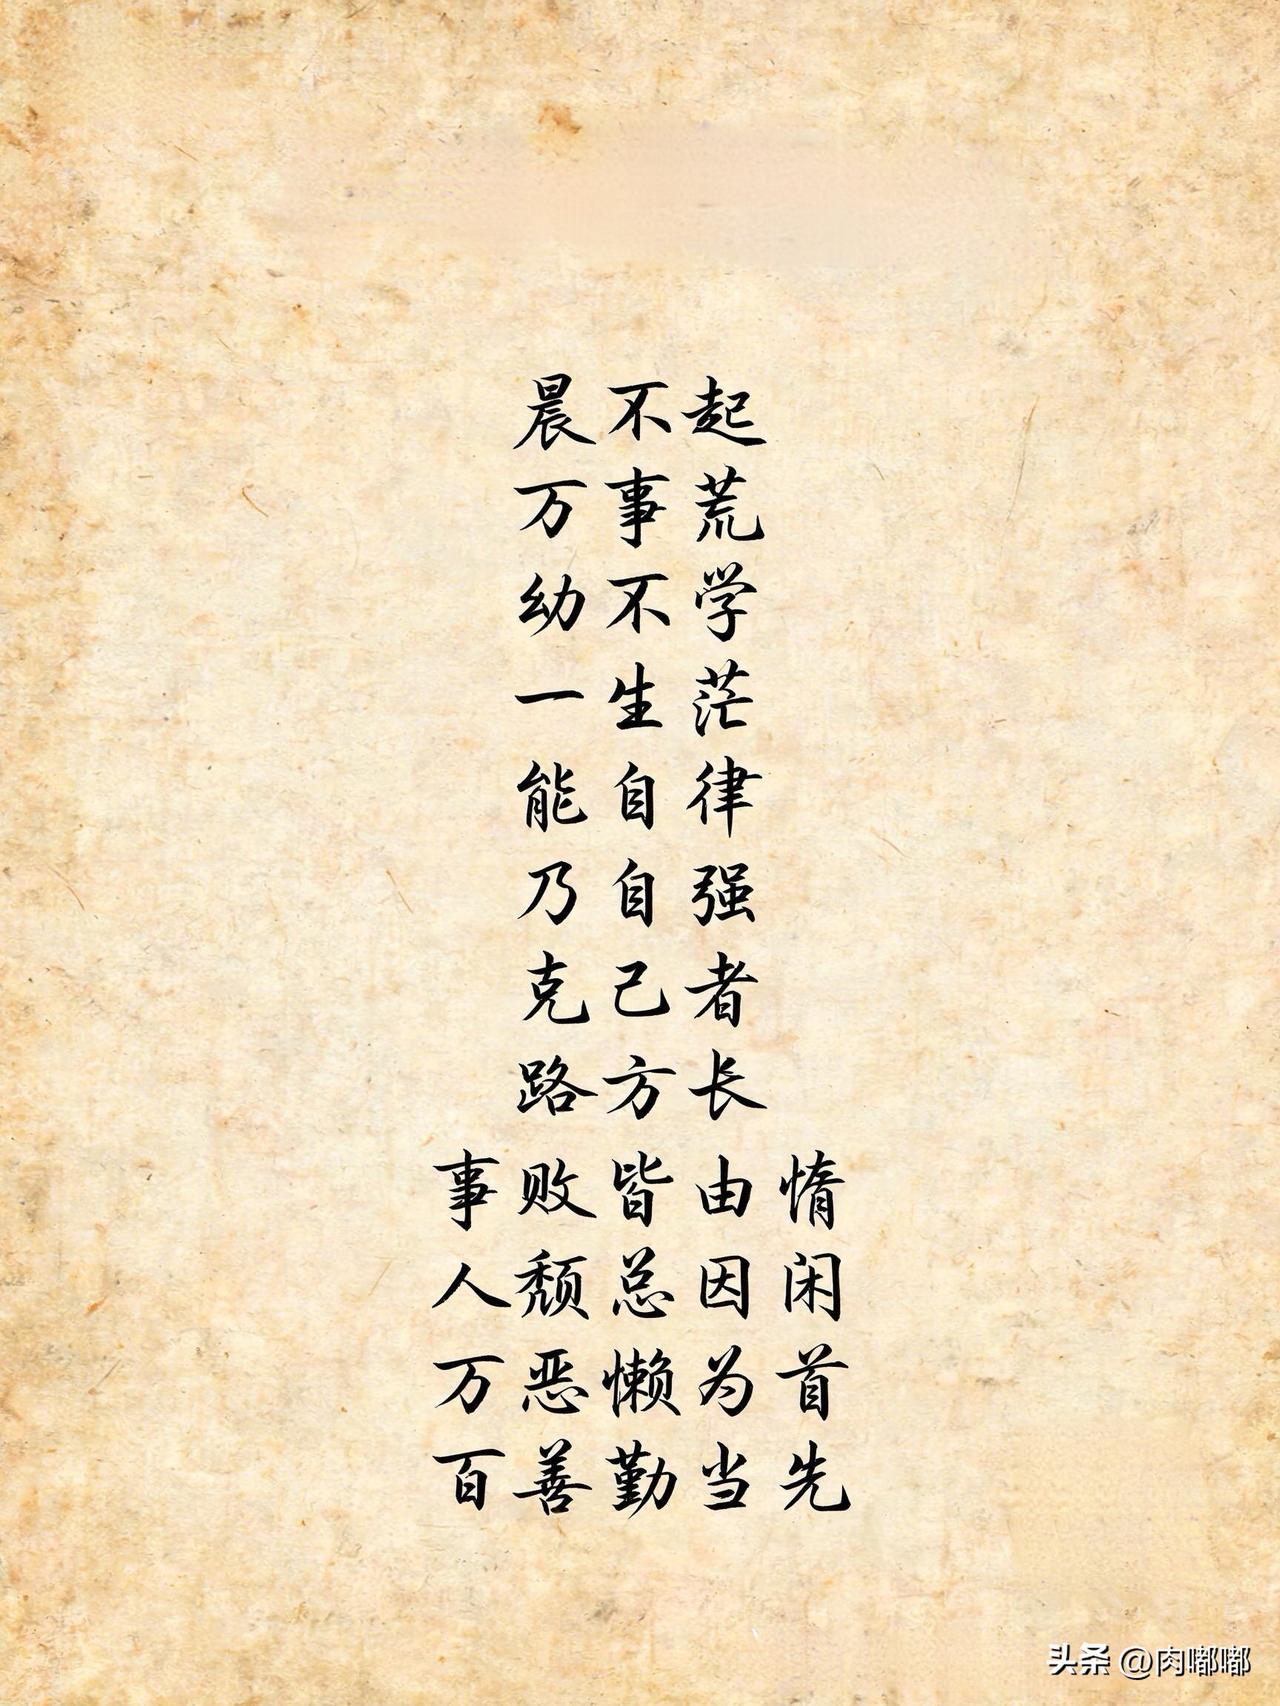 晨不起
万事荒
幼不学
一生茫
能自律
乃自强
克己者
路方长
事败皆由惰
人颓总因闲
万恶懒为首
百善勤当先
头条 @肉嘟嘟